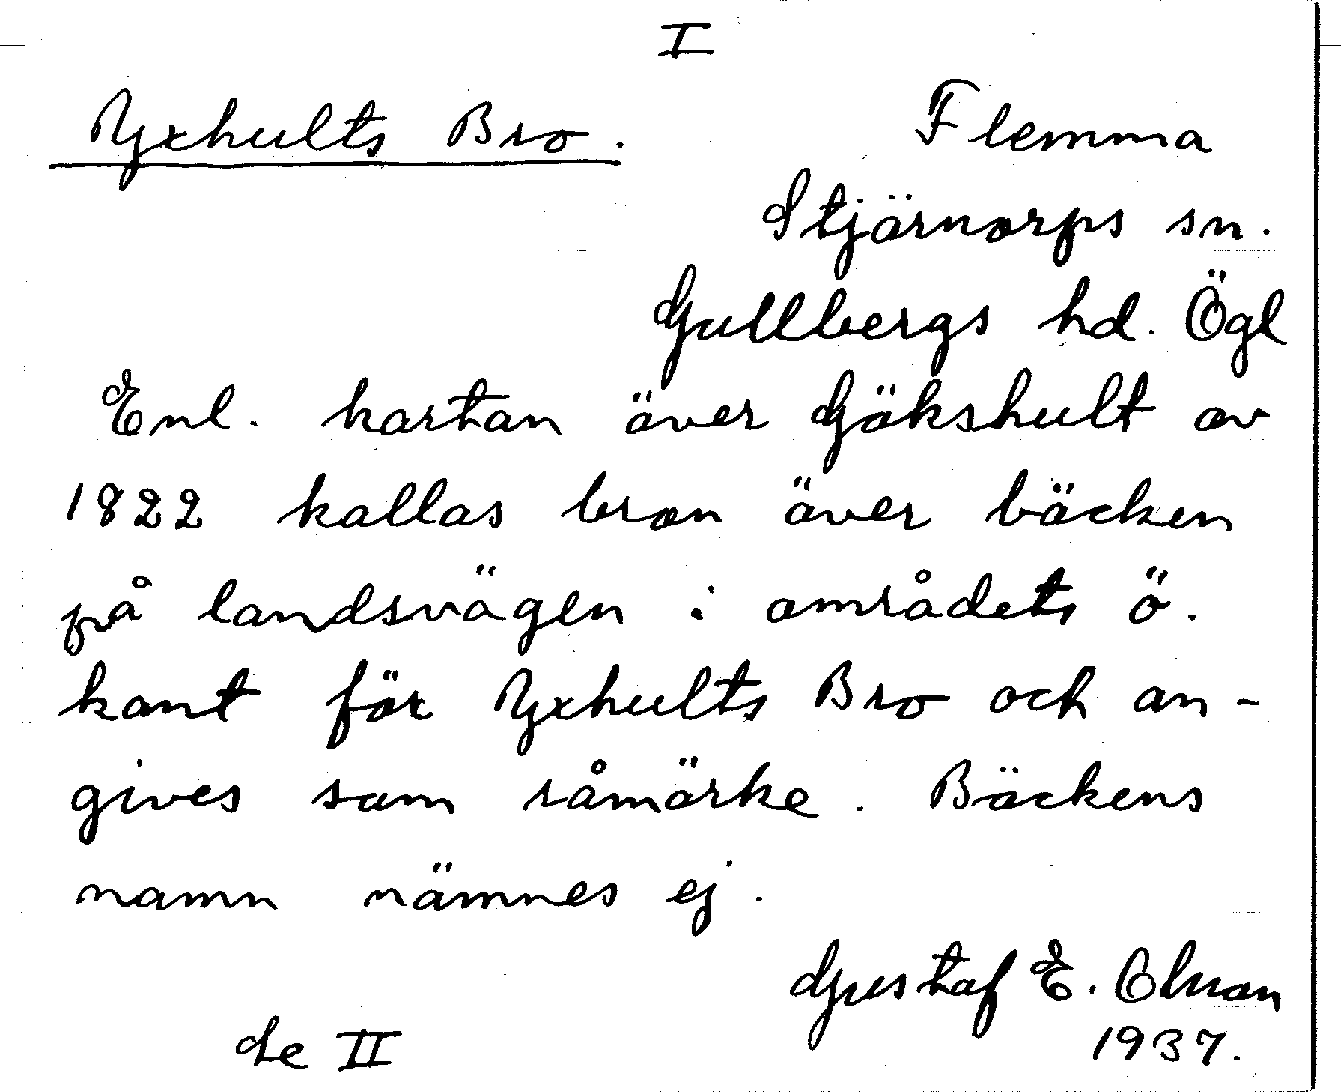 I
Yxhults Bro.
Flemma
Stjärnorps sn.
Gullbergs hd. Ögl
Enl. kartan över Gökshult av
1822 kallas bron över bäcken
på landsvägen i områdets ö.
kant för Yxhults Bro och an-
gives som råmärke. Bäckens
namn nämnes ej.
Gustaf E.
1937.
Se II